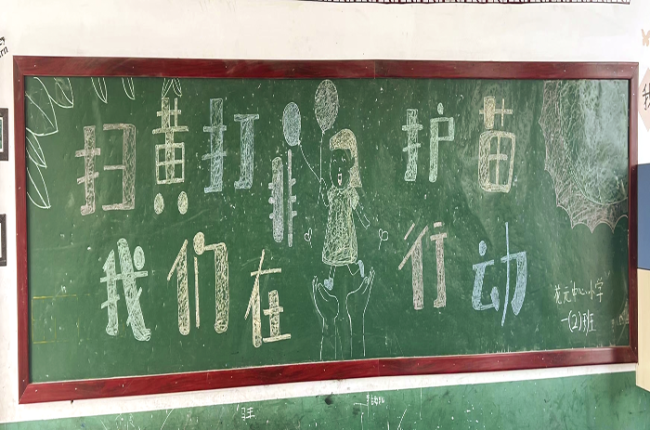 扫黄打非 护苗
我们在行动
花元中心小学
一(2)班